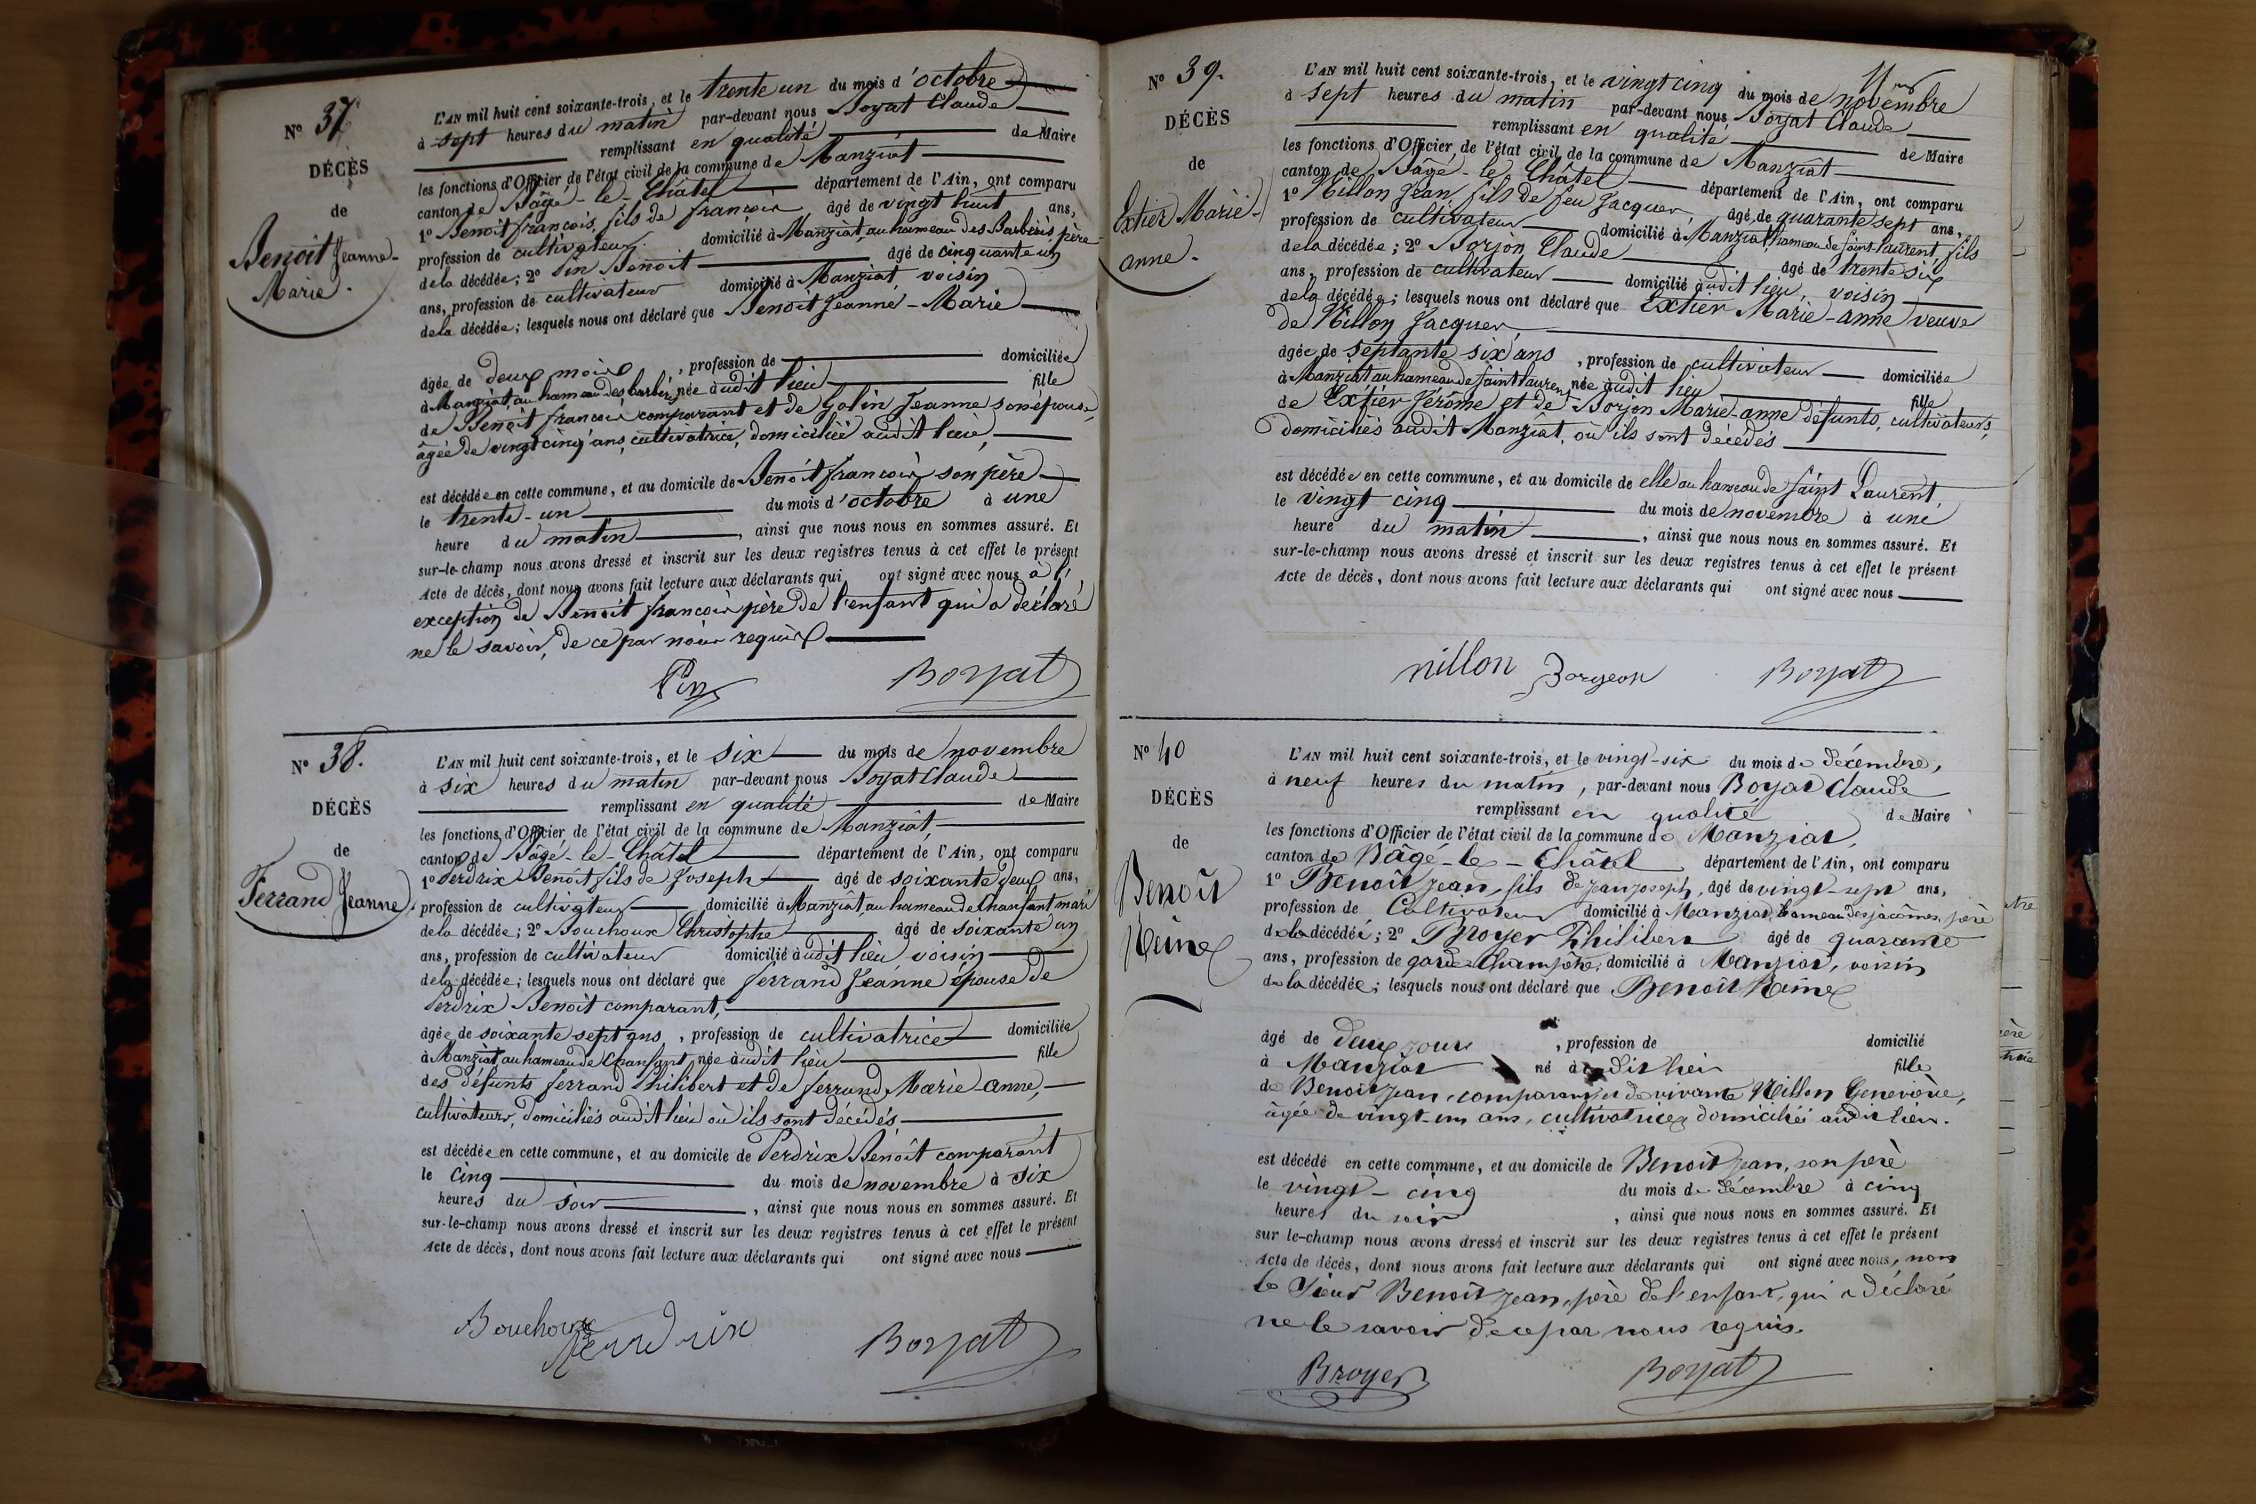 N° 37
DÉCÈS
de
Benoit Jeanne-
Marie.
L'AN mil huit cent soixante-trois, et le trente un du mois d'octobre
à sept heures du matin par-devant nous Boyat Claude
remplissant en qualité de Maire
les fonctions d'Officier de l'état civil de la commune de Manziat
canton de Bâgé-le-Châtel département de l'Ain, ont comparu
1° Benoit françois, fils de françois âgé de vingt huit ans,
profession de cultivateur domicilié à Manziat, au hameau des Barbéris père
de la décédée; 2° Pin Benoit âgé de cinquante un
ans, profession de cultivateur domicilié à Manziat voisin
de la décédée; lesquels nous ont déclaré que Benoit Jeanne-Marie
âgée de deux mois, profession de domiciliée
à Manziat, au hameau des barbéris, née audit lieu fille
de Benoit francois comparant et de Golin Jeanne son épouse,
âgée de vingt cinq ans, cultivatrice, domiciliée audit lieu,
est décédée en cette commune, et au domicile de Benoit francois son père
le trente-un du mois d'octobre à une
heure du matin, ainsi que nous nous en sommes assuré. Et
sur-le-champ nous avons dressé et inscrit sur les deux registres tenus à cet effet le présent
Acte de décès, dont nous avons fait lecture aux déclarants qui ont signé avec nous à l'
exception de Benoit francois père de l'enfant qui a déclaré
ne le savoir, de ce par nous requis
Pin Boyat
N° 38.
DÉCÈS
de
Ferrand Jeanne.
L'AN mil huit cent soixante-trois, et le six du mois de novembre
à six heures du matin par-devant nous Boyat Claude
remplissant en qualité de Maire
les fonctions d'Officier de l'état civil de la commune de Manziat,
canton de Bâgé-le-Châtel département de l'Ain, ont comparu
1° Perdrix Benoit fils de Joseph âgé de soixante deux ans,
profession de cultivateur domicilié à Manziat, au hameau de Chanfant mari
de la décédée; 2° Bouchoux Christophe âgé de soixante un
ans, profession de cultivateur domicilié audit lieu voisin
de la décédée; lesquels nous ont déclaré que ferrand Jeanne épouse de
Perdrix Benoit comparant,
âgée de soixante sept ans, profession de cultivatrice domiciliée
à Manziat au hameau de Chanfant, née audit lieu fille
des défunts ferrand Philibert et de ferrand Marie-anne,
cultivateurs, domiciliés audit lieu où ils sont décédés,
est décédée en cette commune, et au domicile de Perdrix Benoît comparant
le cinq du mois de novembre à six
heures du soir, ainsi que nous nous en sommes assuré. Et
sur-le-champ nous avons dressé et inscrit sur les deux registres tenus à cet effet le présent
Acte de décès, dont nous avons fait lecture aux déclarants qui ont signé avec nous
Bouchoux Perdrix Boyat
N° 39.
DÉCÈS
de
Extier Marie-
anne.
L'AN mil huit cent soixante-trois, et le vingt cinq du mois de novembre
à sept heures du matin par-devant nous Boyat Claude
remplissant en qualité de Maire
les fonctions d'Officier de l'état civil de la commune de Manziat
canton de Bâgé-le-Châtel département de l'Ain, ont comparu
1° Nillon Jean, fils de feu Jacques, âgé de quarante sept ans,
profession de cultivateur domicilié à Manziat, hameau de saint laurent, fils
de la décédée; 2° Borjon Claude âgé de trente six
ans, profession de cultivateur domicilié audit lieu, voisin
de la décédée; lesquels nous ont déclaré que Extier Marie-anne veuve
de Nillon Jacques,
âgée de septante six ans, profession de cultivateur domiciliée
à Manziat au hameau de saint laurent, née audit lieu fille
de Extier Jérôme et de Borjon Marie-anne défunts, cultivateurs,
domiciliés audit Manziat, où ils sont décédés
est décédée en cette commune, et au domicile de elle au hameau de saint Laurent,
le vingt cinq du mois de novembre à une
heure du matin, ainsi que nous nous en sommes assuré. Et
sur-le-champ nous avons dressé et inscrit sur les deux registres tenus à cet effet le présent
Acte de décès, dont nous avons fait lecture aux déclarants qui ont signé avec nous
nillon Borgeon Boyat
N° 40
DÉCÈS
de
Benoît
Reine
L'AN mil huit cent soixante-trois, et le vingt-six du mois de décembre,
à neuf heures du matin, par-devant nous Boyat Claude
remplissant en qualité de Maire
les fonctions d'Officier de l'état civil de la commune de Manziat,
canton de Bâgé-le-Châtel département de l'Ain, ont comparu
1° Benoît jean, fils de jean joseph, âgé de vingt-sept ans,
profession de Cultivateur domicilié à Manziat, hameau des jacômes, père
de la décédée; 2° Broyer Philibert âgé de quarante
ans, profession de garde-Champêtre, domicilié à Manziat, voisin
de la décédée; lesquels nous ont déclaré que Benoît Reine
âgé de deux jours, profession de domicilié
à Manziat né audit lieu fille
de Benoît jean, comparant, et de vivante Nillon Genevève,
âgée de vingt-un ans, cultivatrice, domiciliée audit lieu.
est décédé en cette commune, et au domicile de Benoît jean, son père
le vingt-cinq du mois de décembre à cinq
heures du soir, ainsi que nous nous en sommes assuré. Et
sur le-champ nous avons dressé et inscrit sur les deux registres tenus à cet effet le présent
Acte de décès, dont nous avons fait lecture aux déclarants qui ont signé avec nous, non
le sieur Benoît jean, père de l'enfant, qui a déclaré
ne le savoir de ce par nous requis.
Broyer Boyat